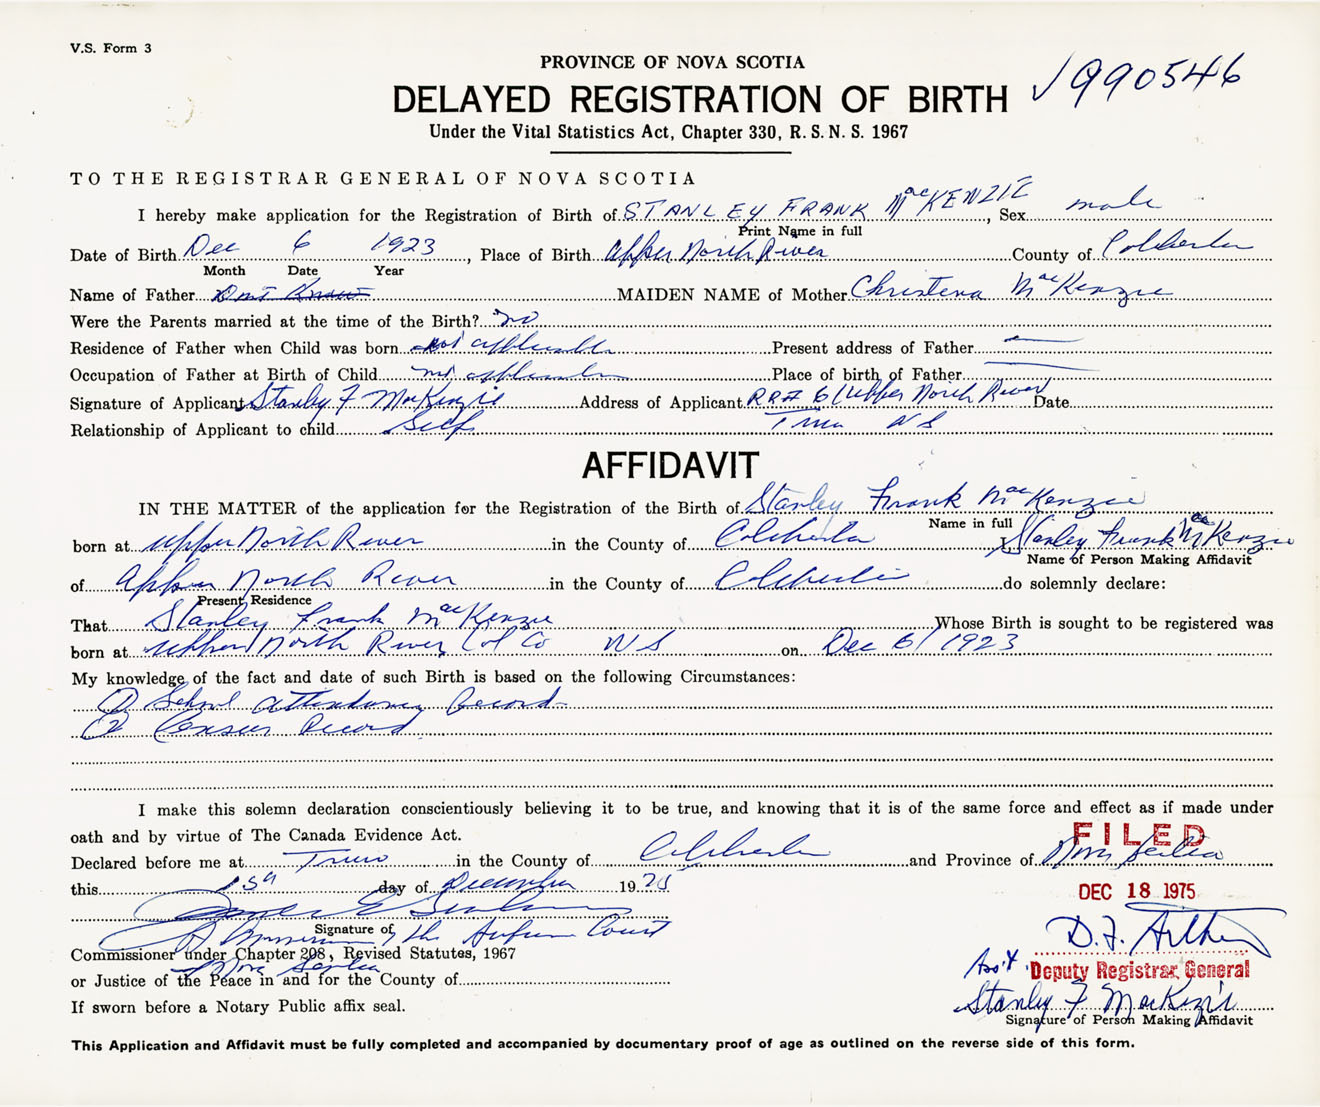 V.S. Form 3
PROVINCE OF NOVA SCOTIA
DELAYED REGISTRATION OF BIRTH
1990546
Under the Vital Statistics Act, Chapter 330, R.S.N.S. 1967
TO THE REGISTRAR GENERAL OF NOVA SCOTIA
I hereby make application for the Registration of Birth of STANLEY FRANK MacKENZIE, Sex male
Print Name in full
Date of Birth Dec 6 1923, Place of Birth Upper North River County of Colchester
Month Date Year
Name of Father Dont Know MAIDEN NAME of Mother Christena MacKenzie
Were the Parents married at the time of the Birth? no
Residence of Father when Child was born not applicable Present address of Father
Occupation of Father at Birth of Child not applicable Place of birth of Father
Signature of Applicant Stanley F MacKenzie Address of Applicant RR# 6 Upper North River Date
Relationship of Applicant to child Self Truro NS
AFFIDAVIT
IN THE MATTER of the application for the Registration of the Birth of Stanley Frank MacKenzie
Name in full
born at Upper North River in the County of Colchester I, Stanley Frank MacKenzie
Name of Person Making Affidavit
of Upper North River in the County of Colchester do solemnly declare:
Present Residence
That Stanley Frank MacKenzie Whose Birth is sought to be registered was
born at Upper North River Col Co NS on Dec 6/1923
My knowledge of the fact and date of such Birth is based on the following Circumstances:
1 School attendance Record
2 Census Record
I make this solemn declaration conscientiously believing it to be true, and knowing that it is of the same force and effect as if made under
oath and by virtue of The Canada Evidence Act.
FILED
Declared before me at Truro in the County of Colchester and Province of Nova Scotia
this day of December 1975
DEC 18 1975
Signature of
A Commissioner of the Supreme Court
Commissioner under Chapter 298, Revised Statutes, 1967
of Nova Scotia
or Justice of the Peace in and for the County of
Ass't Deputy Registrar General
If sworn before a Notary Public affix seal.
Stanley F MacKenzie
Signature of Person Making Affidavit
This Application and Affidavit must be fully completed and accompanied by documentary proof of age as outlined on the reverse side of this form.